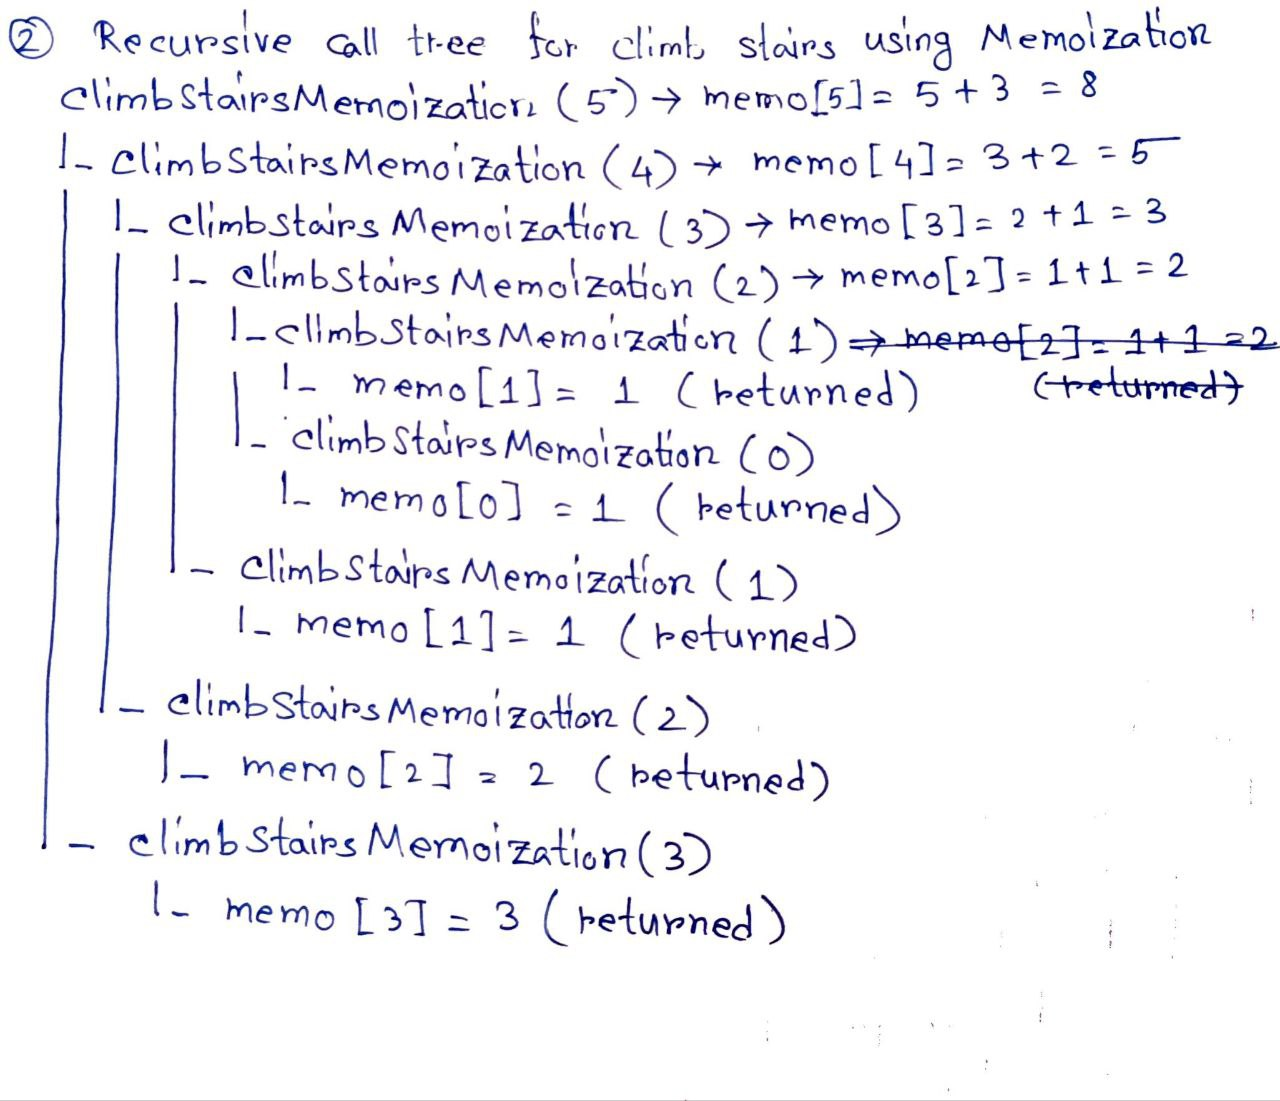 ② Recursive call tree for climb stairs using Memoization
climbStairsMemoization (5) → memo[5] = 5 + 3 = 8
|- climbStairsMemoization (4) → memo[4] = 3 + 2 = 5
|- climbstairsMemoization (3) → memo[3] = 2 + 1 = 3
|- climbStairsMemoization (2) → memo[2] = 1 + 1 = 2
|- climbStairsMemoization (1) ⇒ memo[2] = 1 + 1 = 2
(returned)
|- memo[1] = 1 (returned)
|- climbStairsMemoization (0)
|- memo[0] = 1 (returned)
|- climbStairsMemoization (1)
|- memo[1] = 1 (returned)
|- climbStairsMemoization (2)
|- memo[2] = 2 (returned)
|- climbStairsMemoization (3)
|- memo[3] = 3 (returned)